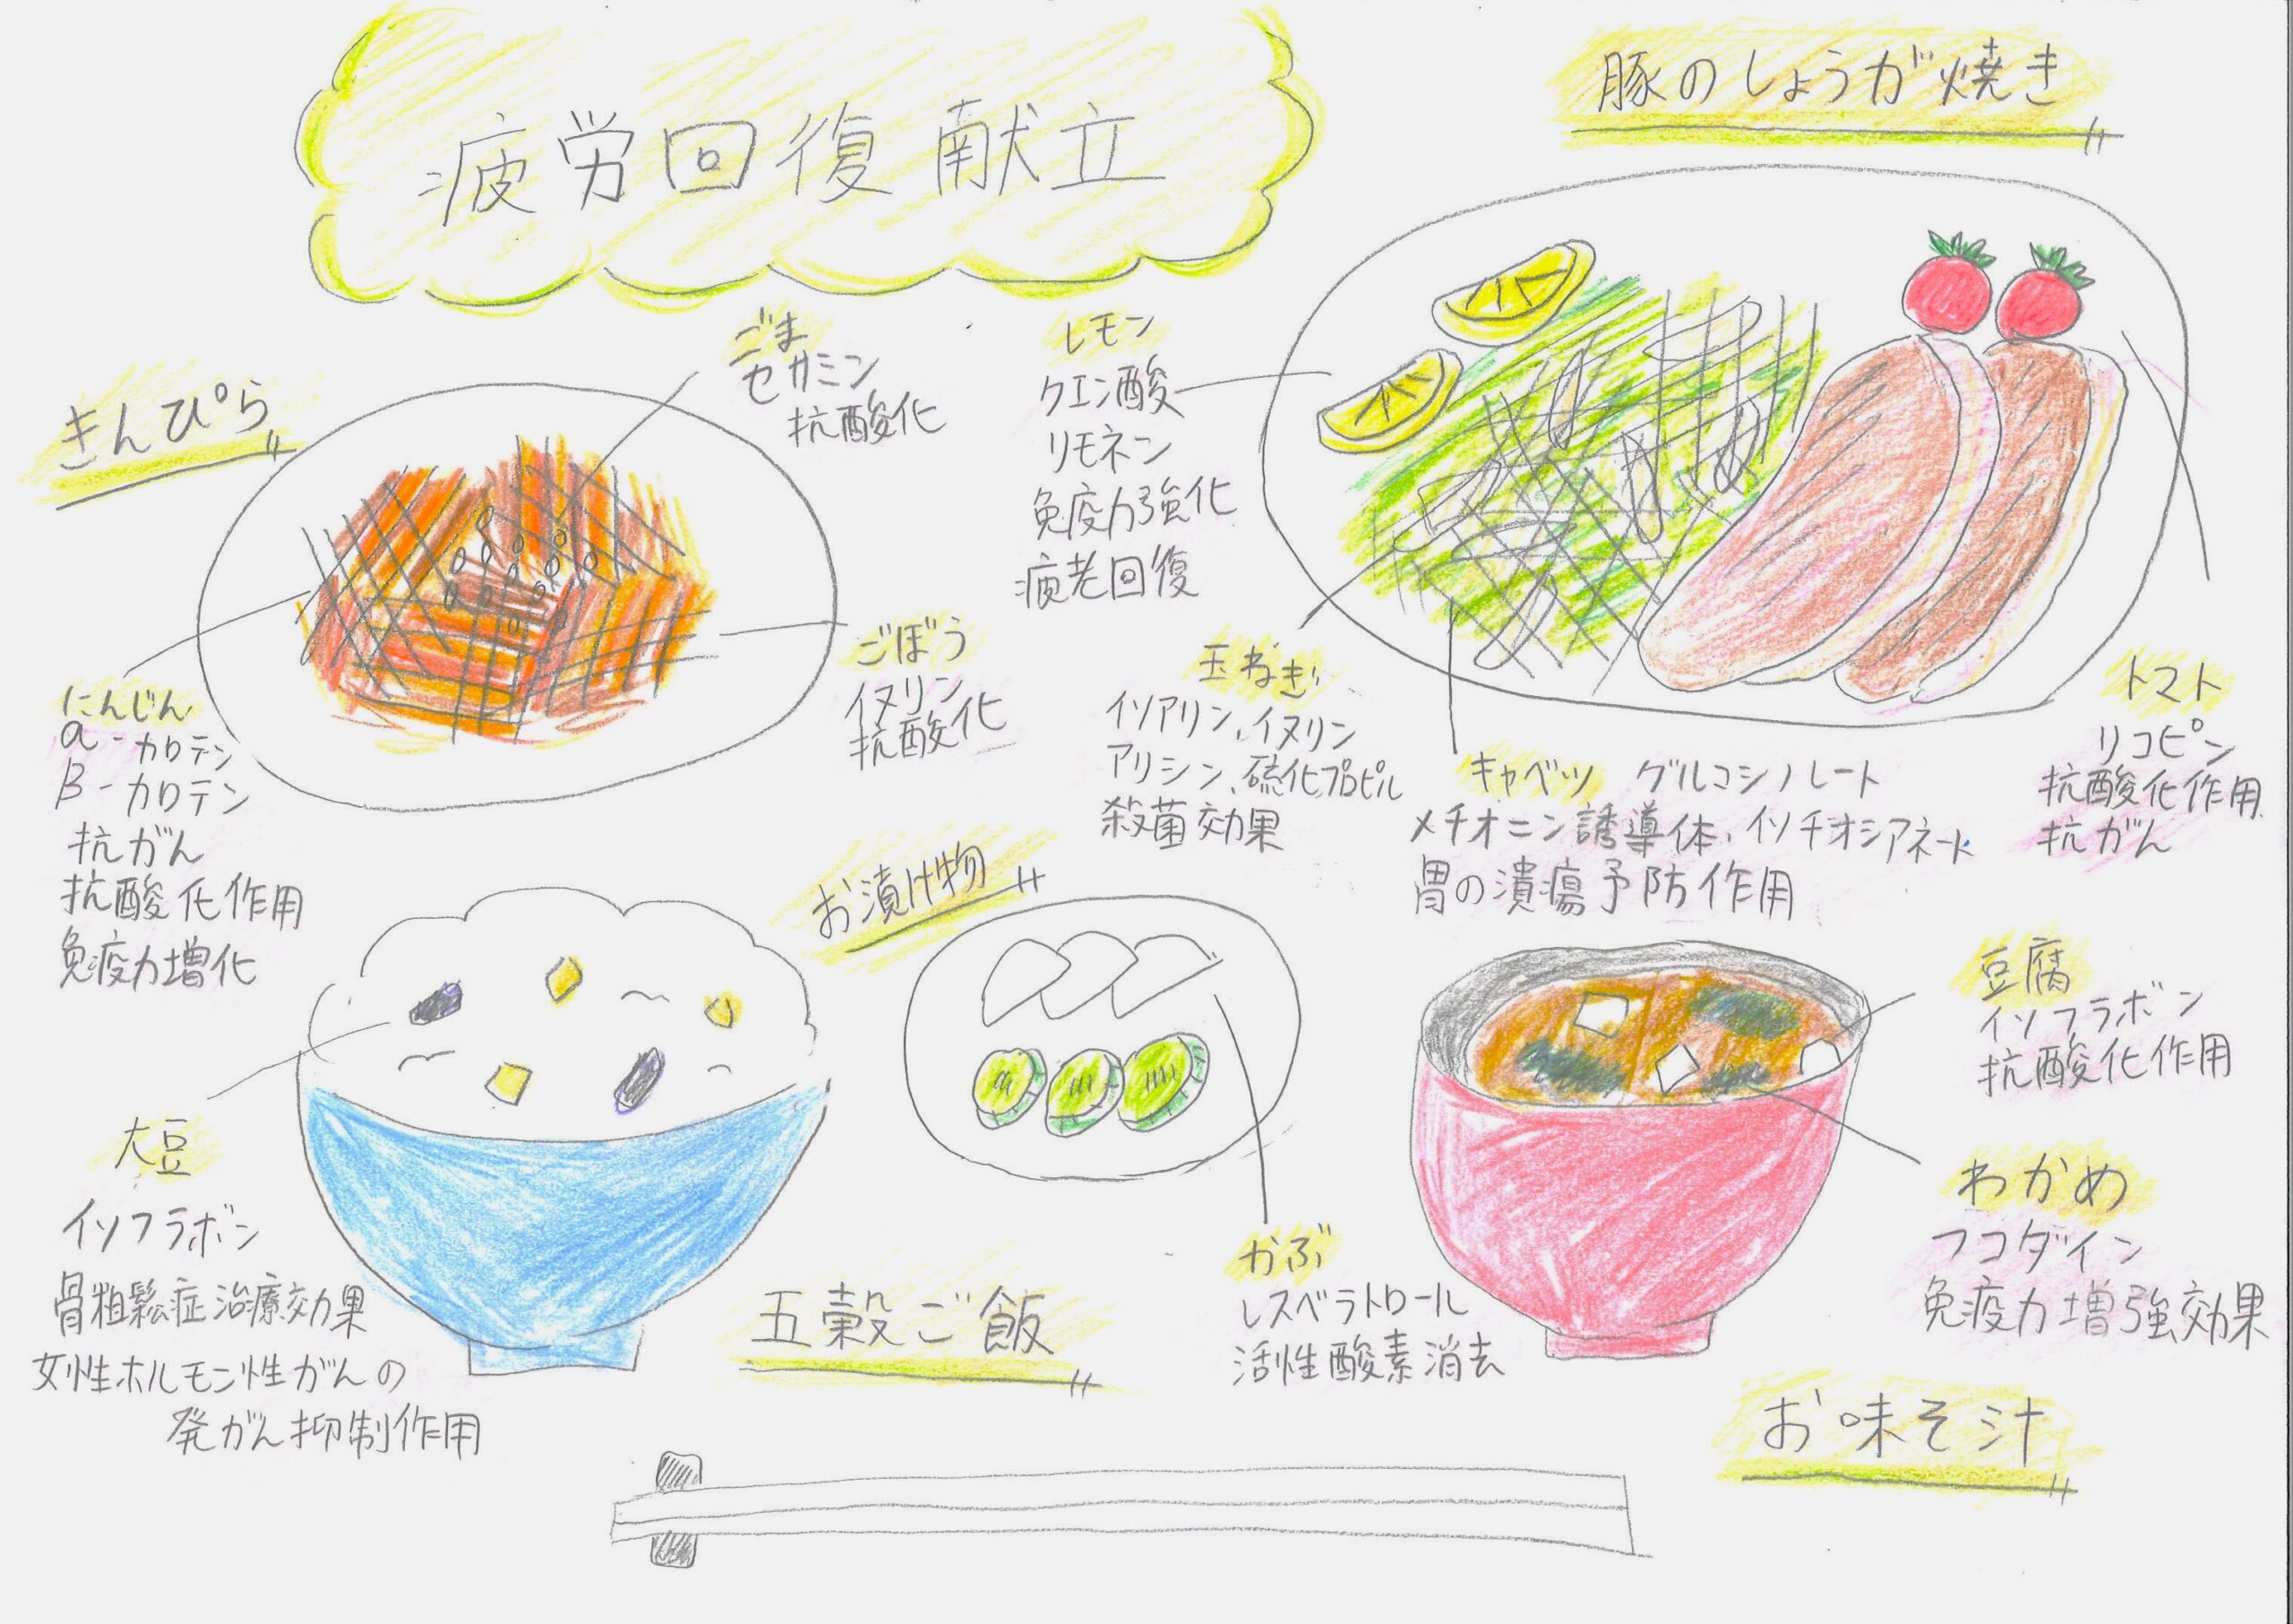 疲労回復献立
豚のしょうが焼き
きんぴら
ごま
セサミン
抗酸化
にんじん
α-カロテン
β-カロテン
抗がん
抗酸化作用
免疫力増化
ごぼう
イヌリン
抗酸化
レモン
クエン酸
リモネン
免疫力強化
疲老回復
玉ねぎ
イソアリン、イヌリン
アリシン、硫化プロピル
殺菌効果
キャベツ グルコシノレート
メチオニン誘導体、イソチオシアネート
胃の潰瘍予防作用
トマト
リコピン
抗酸化作用
抗がん
お漬け物
かぶ
レスベラトロール
活性酸素消去
大豆
イソフラボン
骨粗鬆症治療効果
女性ホルモン性がんの
発がん抑制作用
五穀ご飯
豆腐
イソフラボン
抗酸化作用
わかめ
フコダイン
免疫力増強効果
お味そ汁